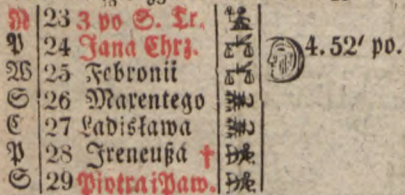 N 23 3 po S. Tr.
P 24 Jana Chrz. 4. 52' po.
W 25 Febronii
S 26 Marentego
C 27 Ladisława
P 28 Ireneußá †
S 29 Piotra i Paw.